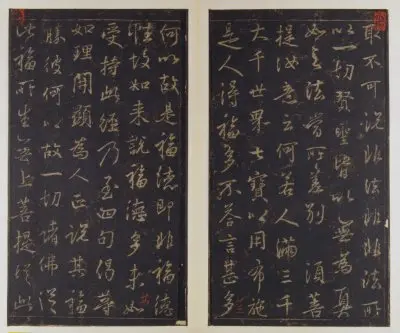 取不可說非法非非法所
以一切賢聖皆以無為真
如法所差別 須菩
提汝意云何若人滿三千
大千世界七寶以用布施
是人得福多不答言甚多
何以故是福德即非福德
性故如來說福德多未如
受持此經乃至四句偈等
如理開顯為人正說其福
勝彼何以故一切諸佛從
此福所生無上菩提從此